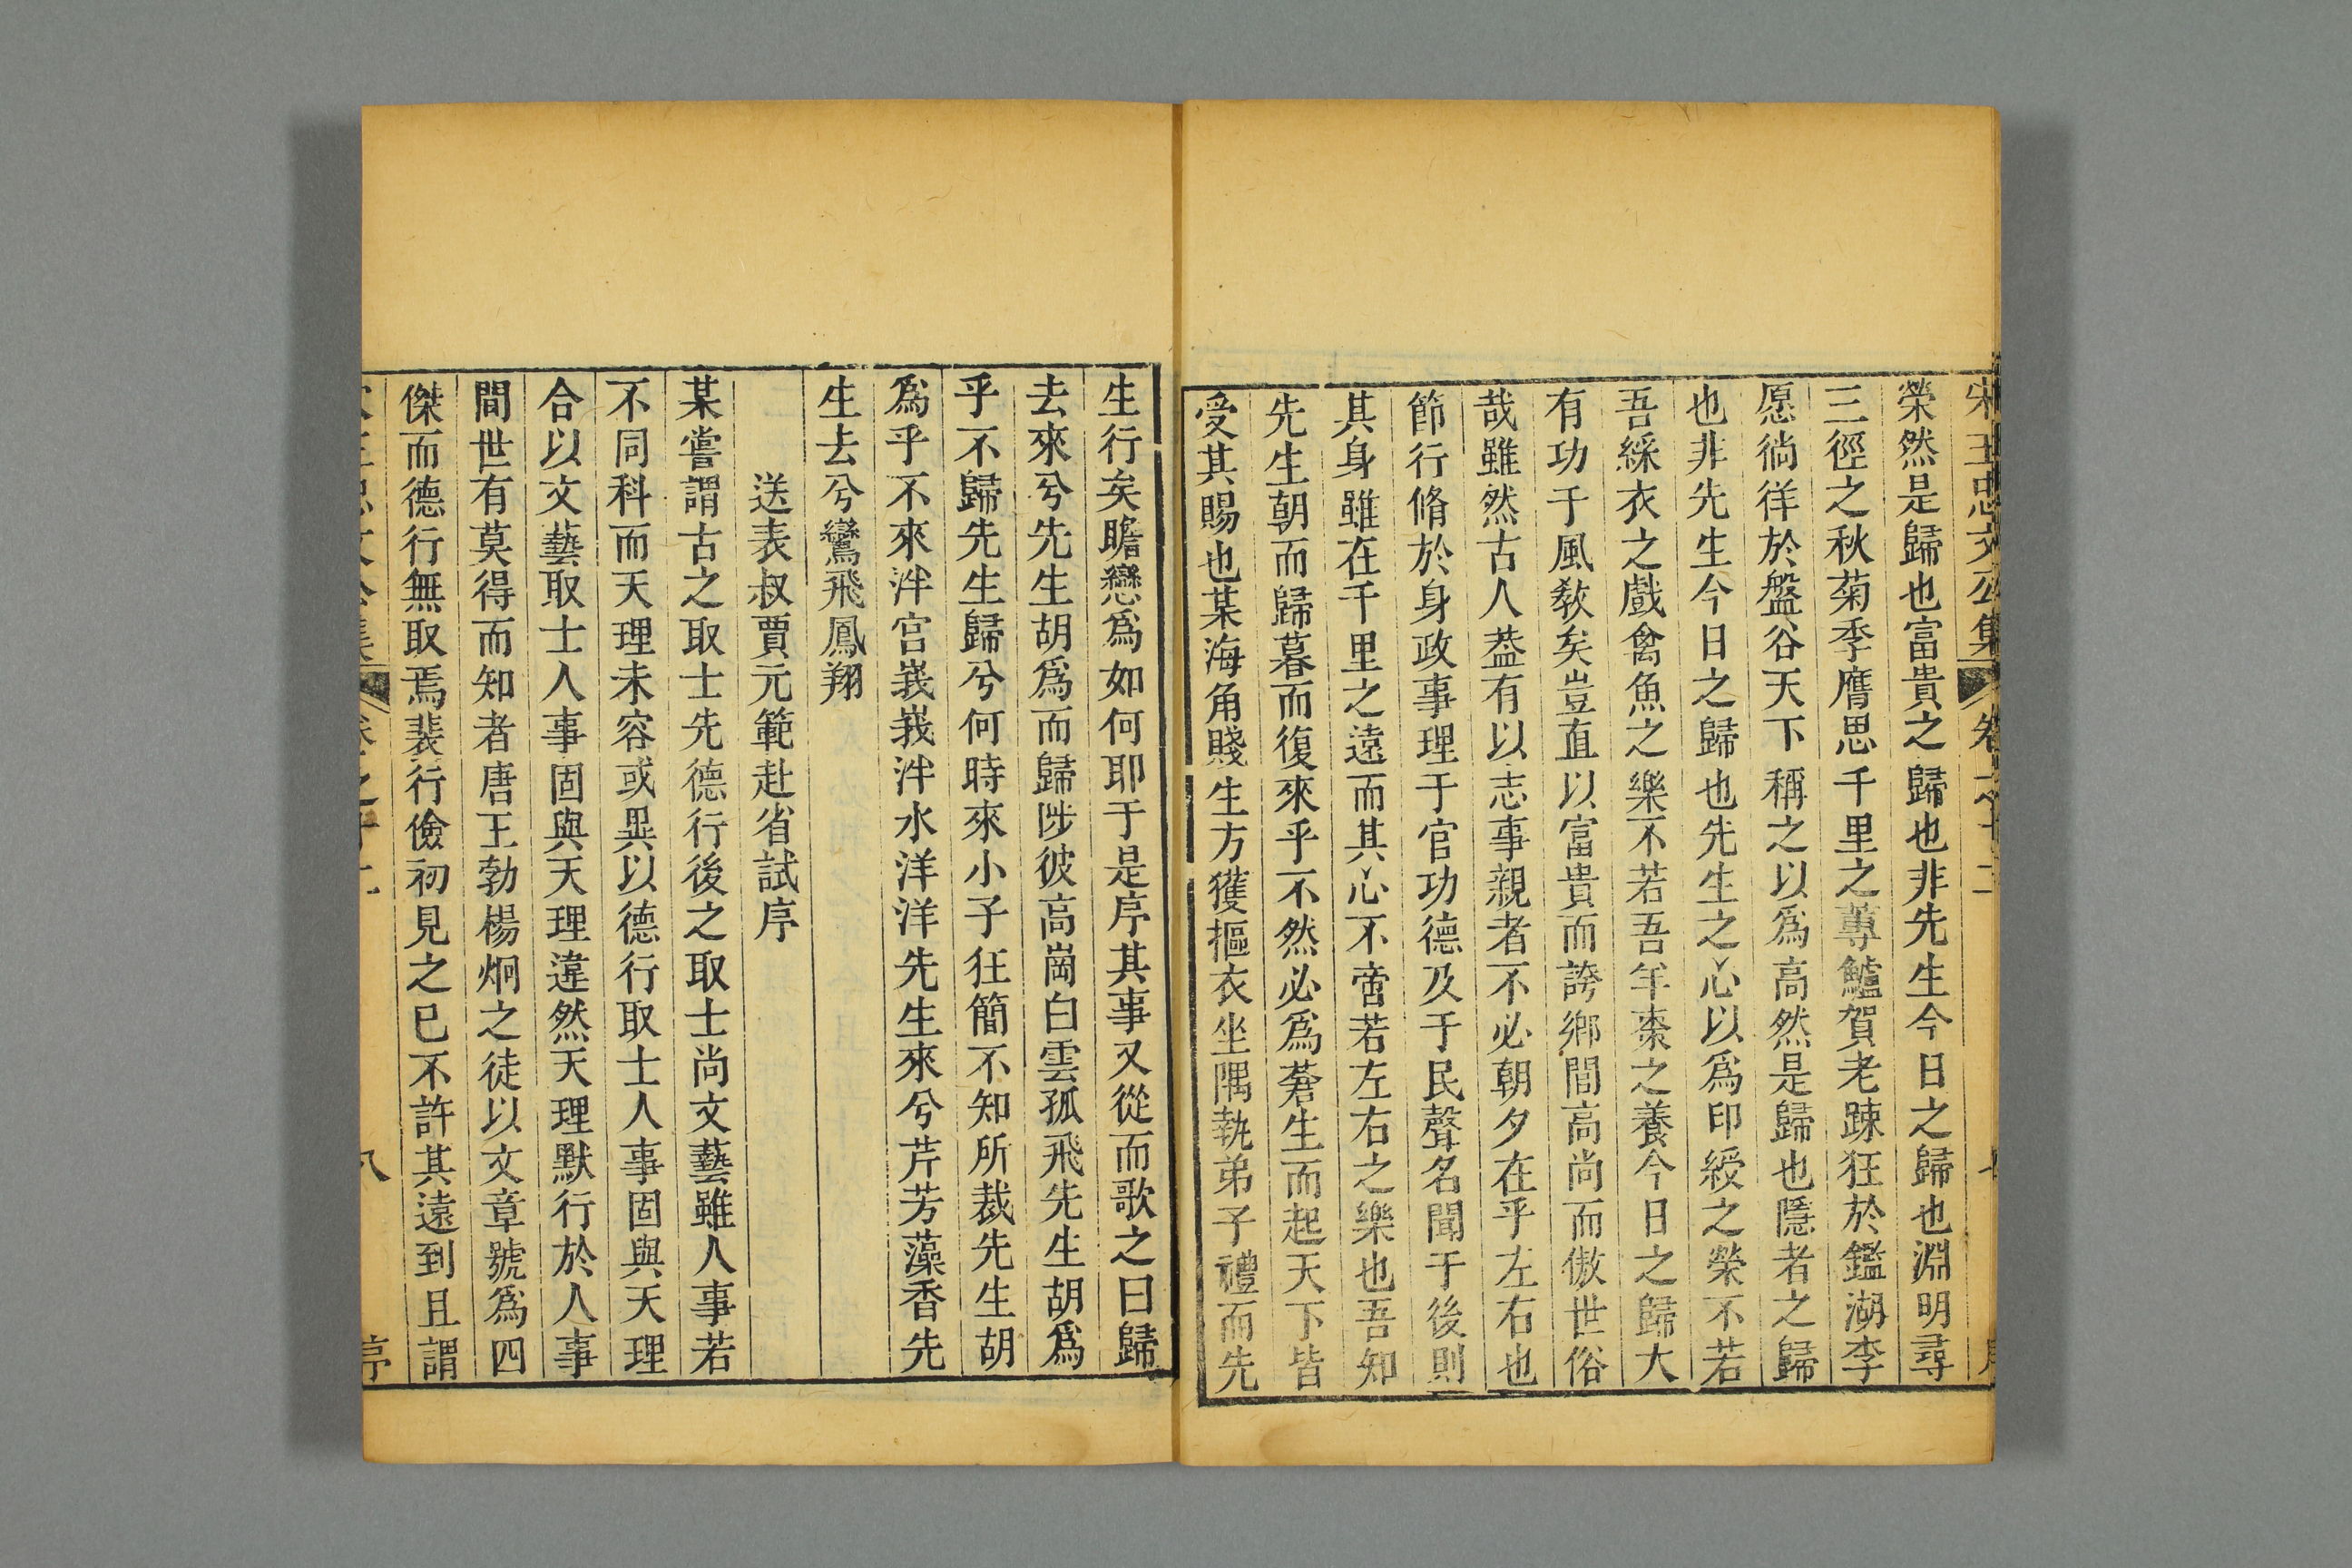 宋王忠文公集 卷之十二 七 序
榮然是歸也富貴之歸也非先生今日之歸也淵明尋
三徑之秋菊季膺思千里之蓴鱸賀老踈狂於鑑湖李
愿徜徉於盤谷天下稱之以爲高然是歸也隱者之歸
也非先生今日之歸也先生之心以爲印綬之榮不若
吾綵衣之戲禽魚之樂不若吾羊棗之養今日之歸大
有功于風敎矣豈直以富貴而誇鄉閭高尚而傲世俗
哉雖然古人葢有以志事親者不必朝夕在乎左右也
節行脩於身政事理于官功德及于民聲名聞于後則
其身雖在千里之遠而其心不啻若左右之樂也吾知
先生朝而歸暮而復來乎不然必爲蒼生而起天下皆
受其賜也某海角賤生方獲摳衣坐隅執弟子禮而先
生行矣瞻戀爲如何耶于是序其事又從而歌之曰歸
去來兮先生胡爲而歸陟彼高崗白雲孤飛先生胡爲
乎不歸先生歸兮何時來小子狂簡不知所裁先生胡
爲乎不來泮宫峩峩泮水洋洋先生來兮芹芳藻香先
生去兮鸞飛鳳翔
送表叔賈元範赴省試序
某嘗謂古之取士先德行後之取士尚文藝雖人事若
不同科而天理未容或異以德行取士人事固與天理
合以文藝取士人事固與天理違然天理默行於人事
間世有莫得而知者唐王勃楊炯之徒以文章號爲四
傑而德行無取焉裴行儉初見之已不許其遠到且謂
八